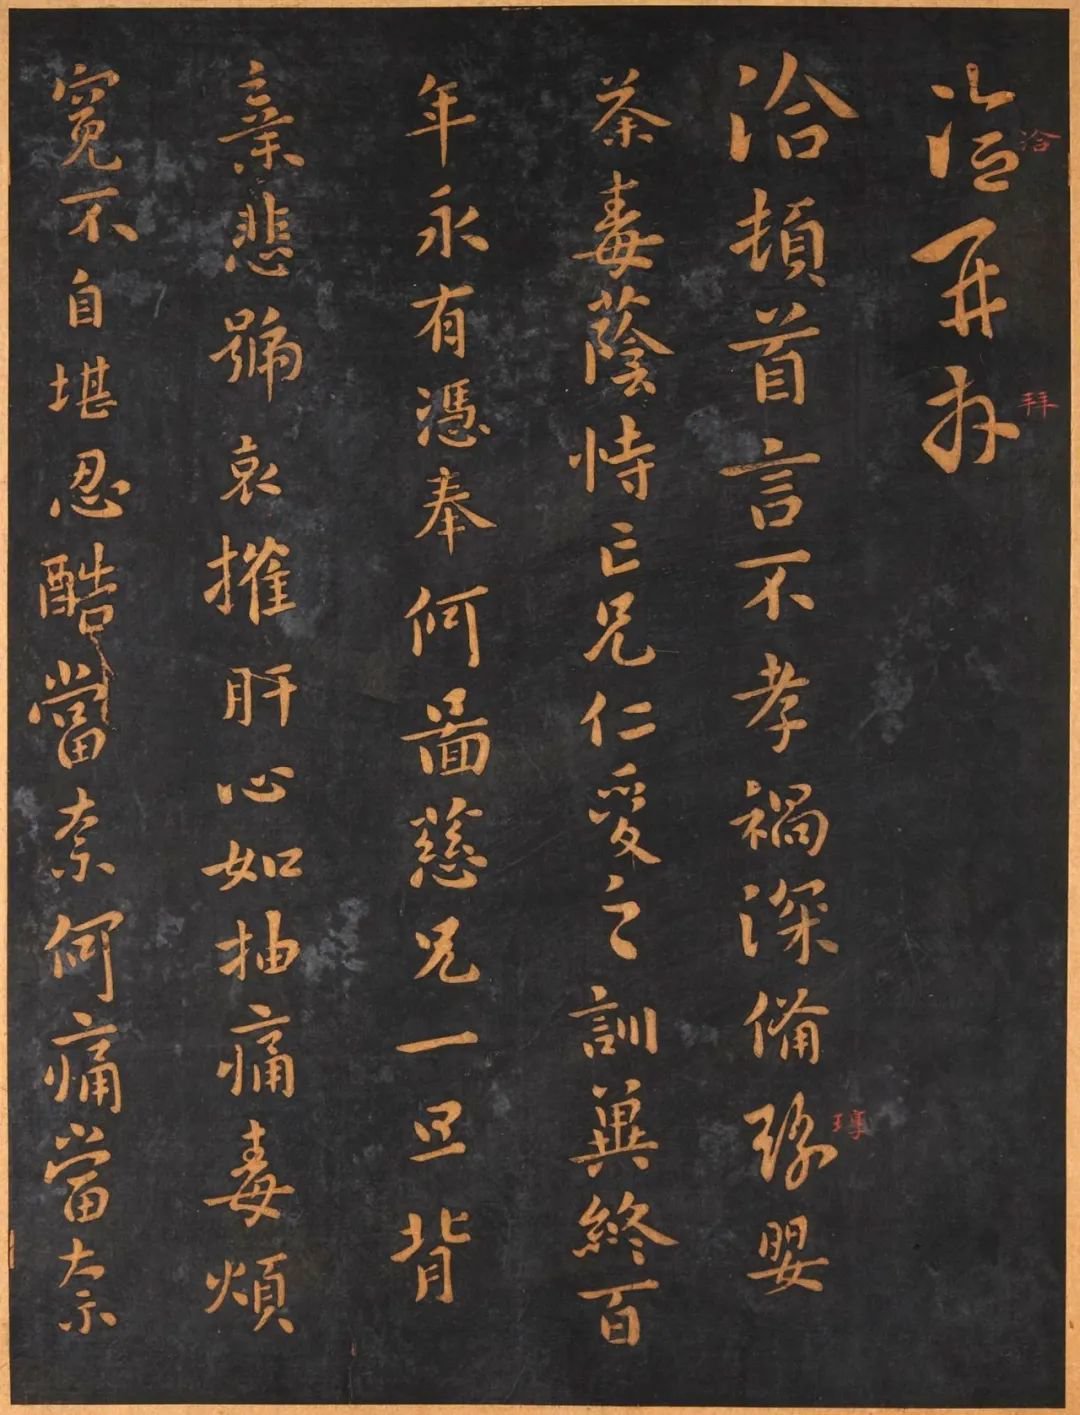 洽再拜
洽
拜
洽頓首言不孝禍深備豫嬰
荼毒蔭恃亡兄仁愛之訓冀終百
年永有憑奉何圖慈兄一旦背
棄悲號哀摧肝心如抽痛毒煩
冤不自堪忍酷當奈何痛當奈